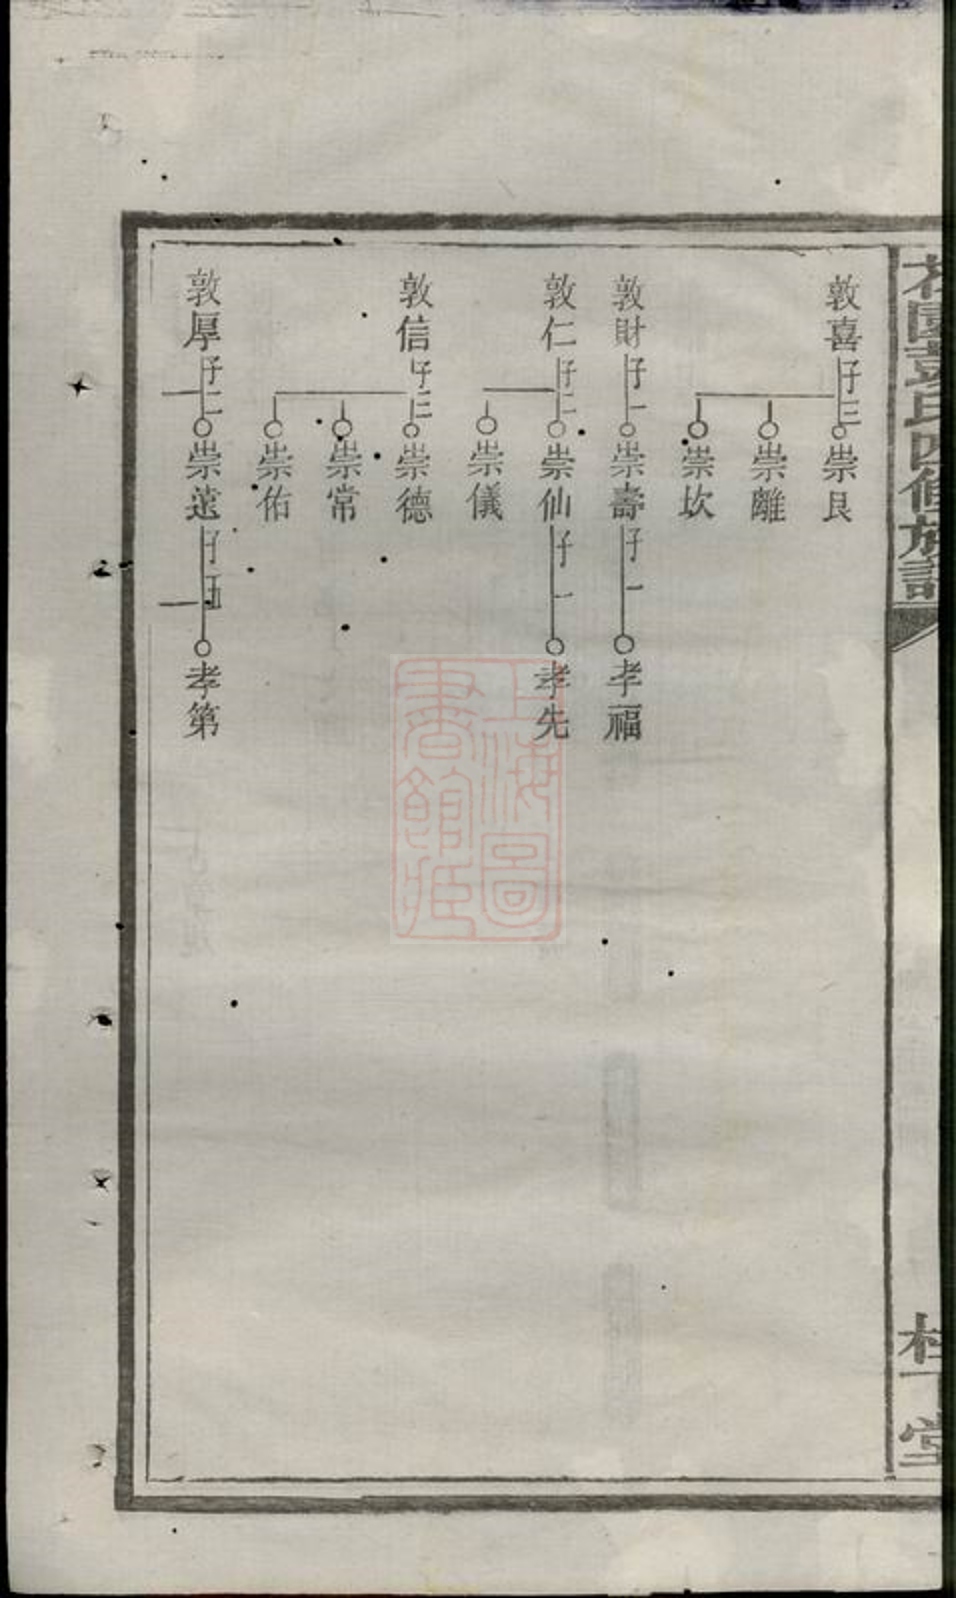 敦喜子三崇艮
崇離
崇坎
敦財子一崇壽子一孝福
敦仁子二崇仙子一孝先
崇儀
敦信子三崇德
崇常
崇佑
敦厚子二崇遠子四孝第
氏四修族譜
柱下堂
上海圖書館藏